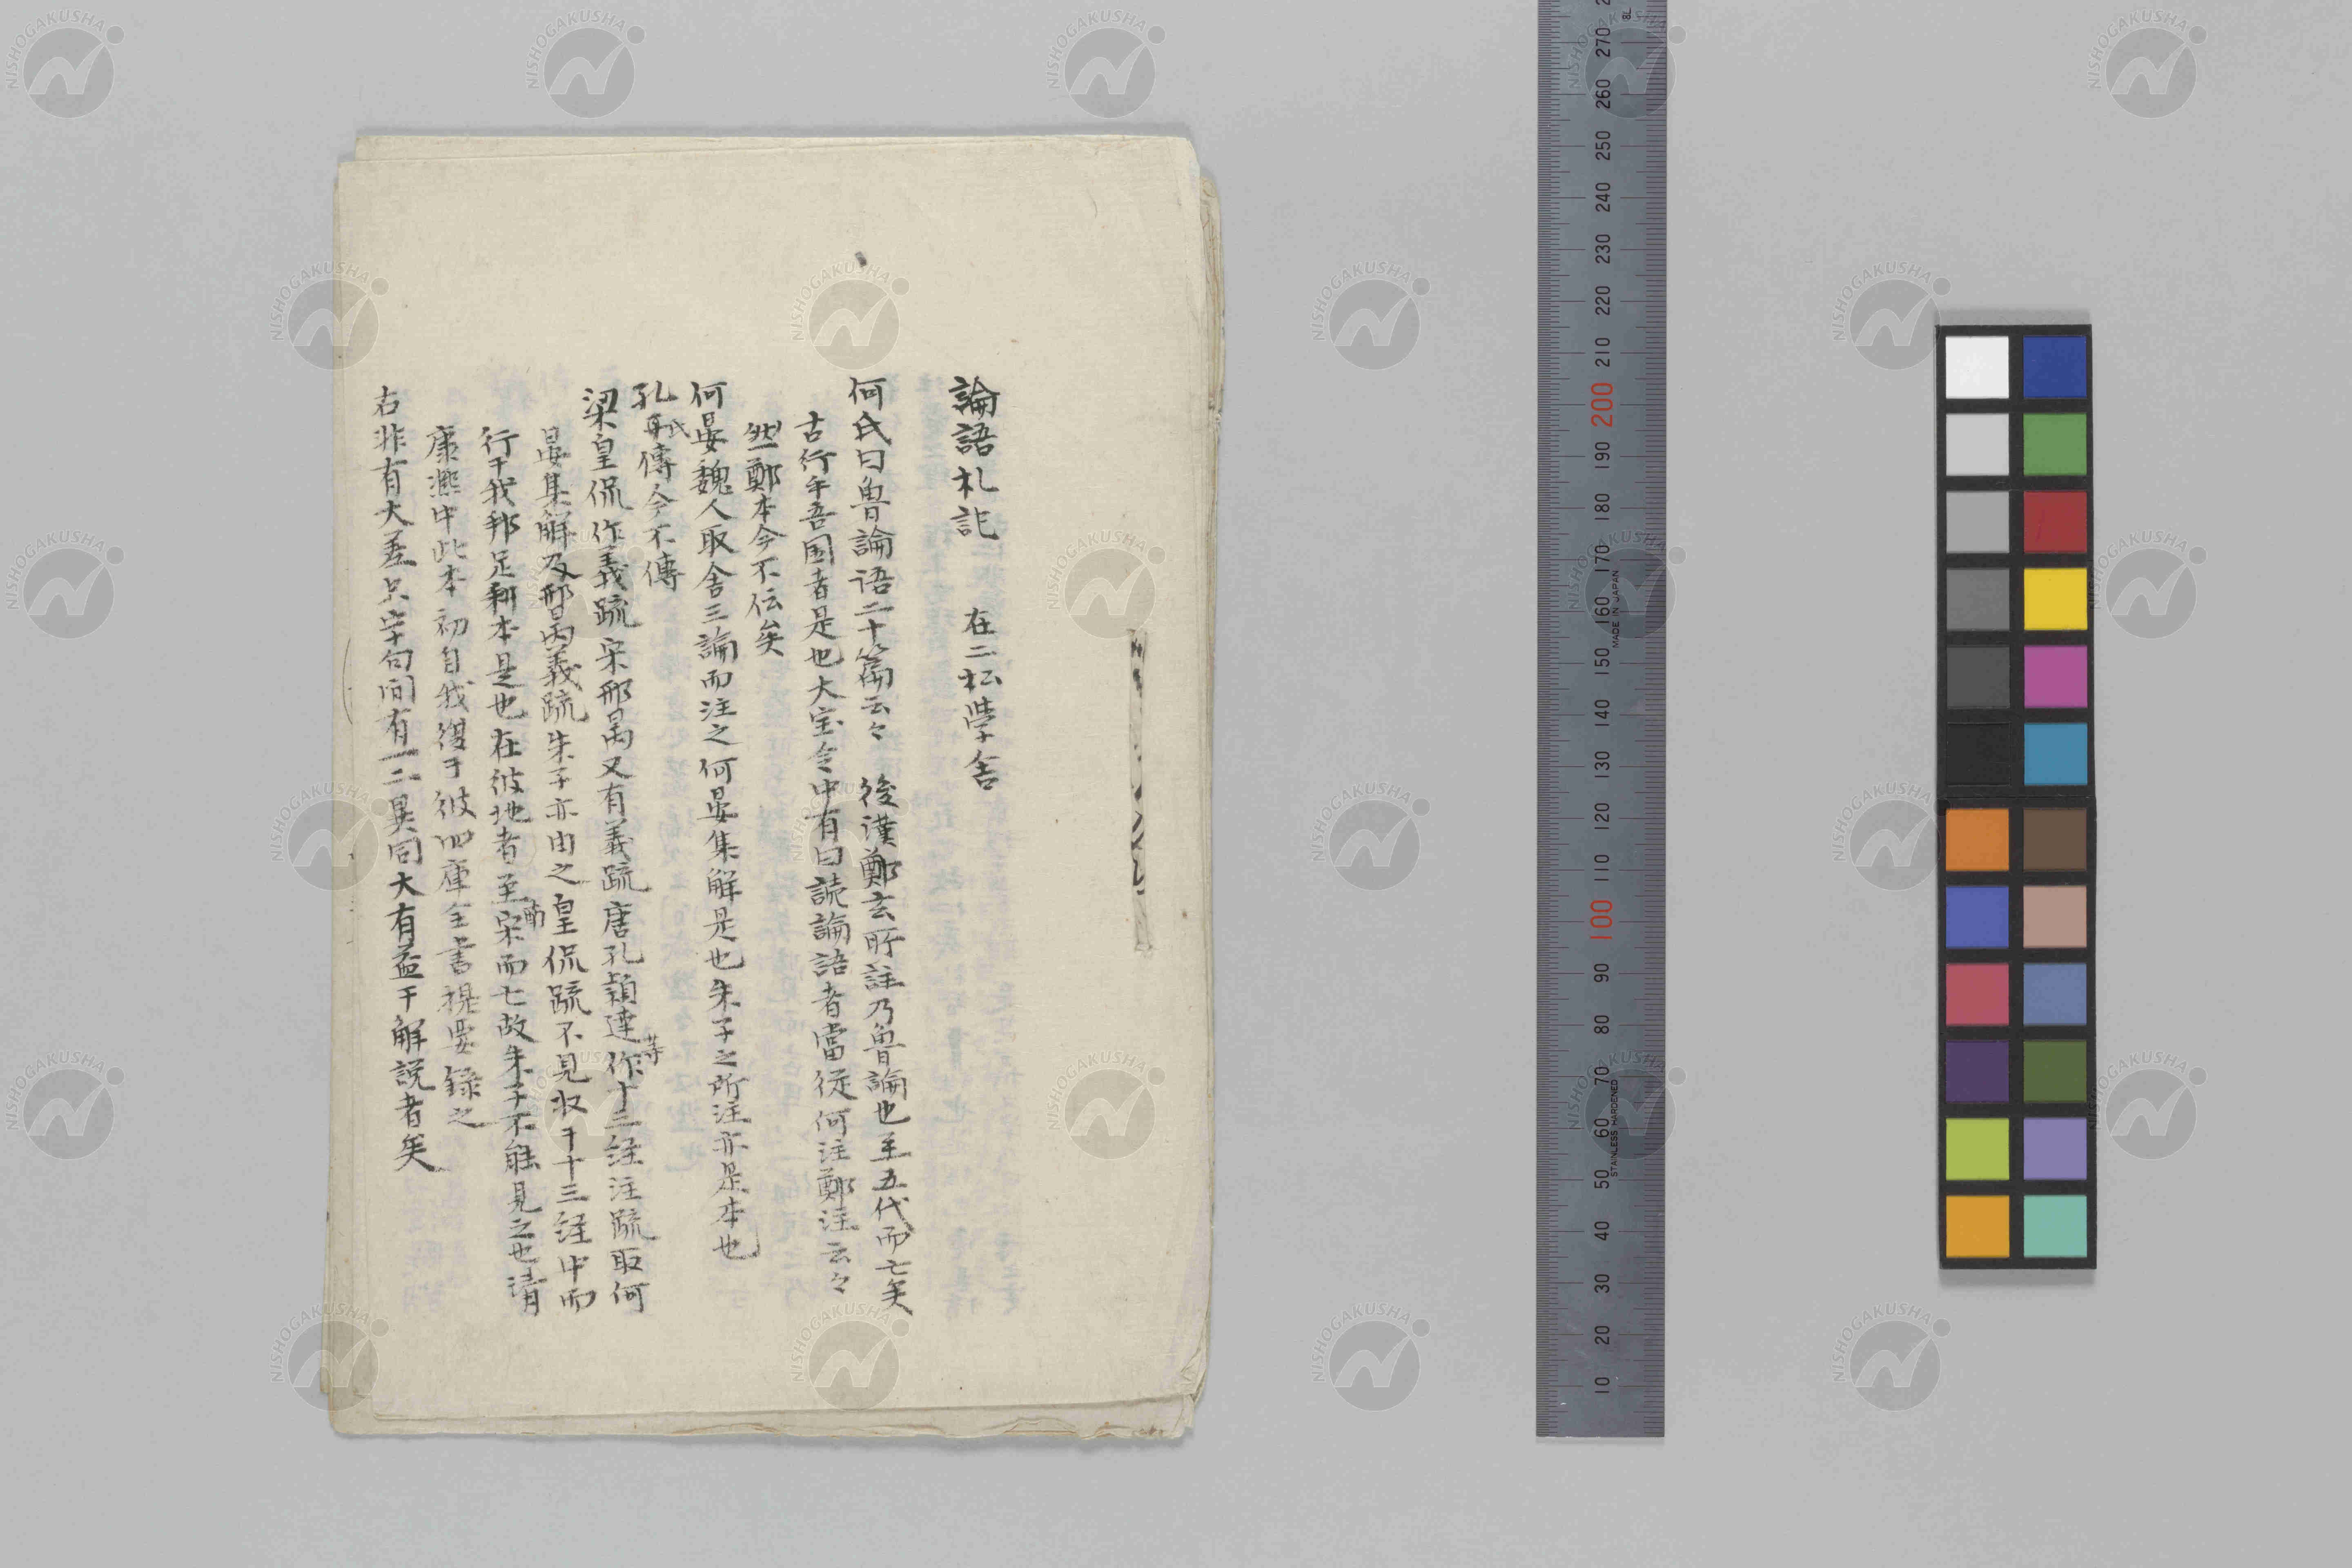 論語札記　在二松学舎
何氏曰魯論语二十篇云々　後漢鄭玄所註乃魯論也至五代而亡矣
古行乎吾国者是也大宝令中有曰読論語者當従何注鄭注云々
然鄭本今不伝矣
何晏魏人取舎三論而注之何晏集解是也朱子之所注亦是本也
孔氏傳今不傳
梁皇侃作義疏宋邢昺又有義疏唐孔穎達等作十三経注疏取何
晏集解及邢昺義疏朱子亦由之皇侃疏不見収于十三経中而
行于我邦足利本是也在彼地者至南宋而亡故朱子不能見之也清
康熙中此本初自我復于彼四庫全書提要録之
右非有大差只字句间有一二異同大有益于解説者矣
NISHOGAKUSHA
MADE IN JAPAN
STAINLESS HARDENED
270
260
250
240
230
220
210
200
190
180
170
160
150
140
130
120
110
100
90
80
70
60
50
40
30
20
10